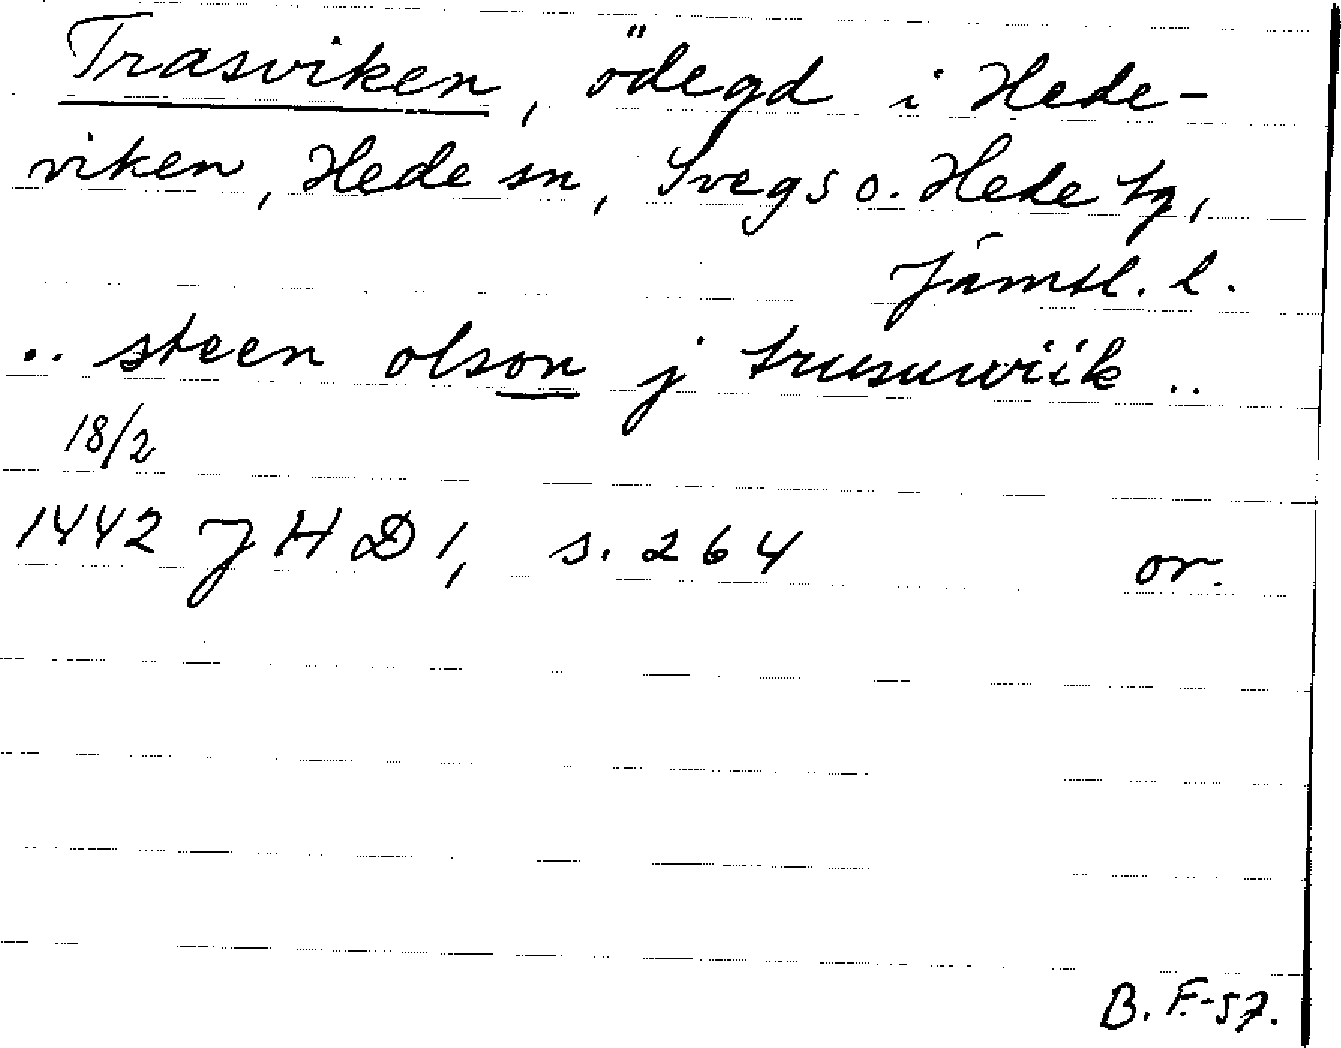 Trasviken, ödegd i Hede-
viken, Hede sn, Svegs o. Hede tg,
Jämtl. l.
.. steen olson j trusuwiik ..
18/2
1442 JHD 1, s. 264 or.
B. F.-57.